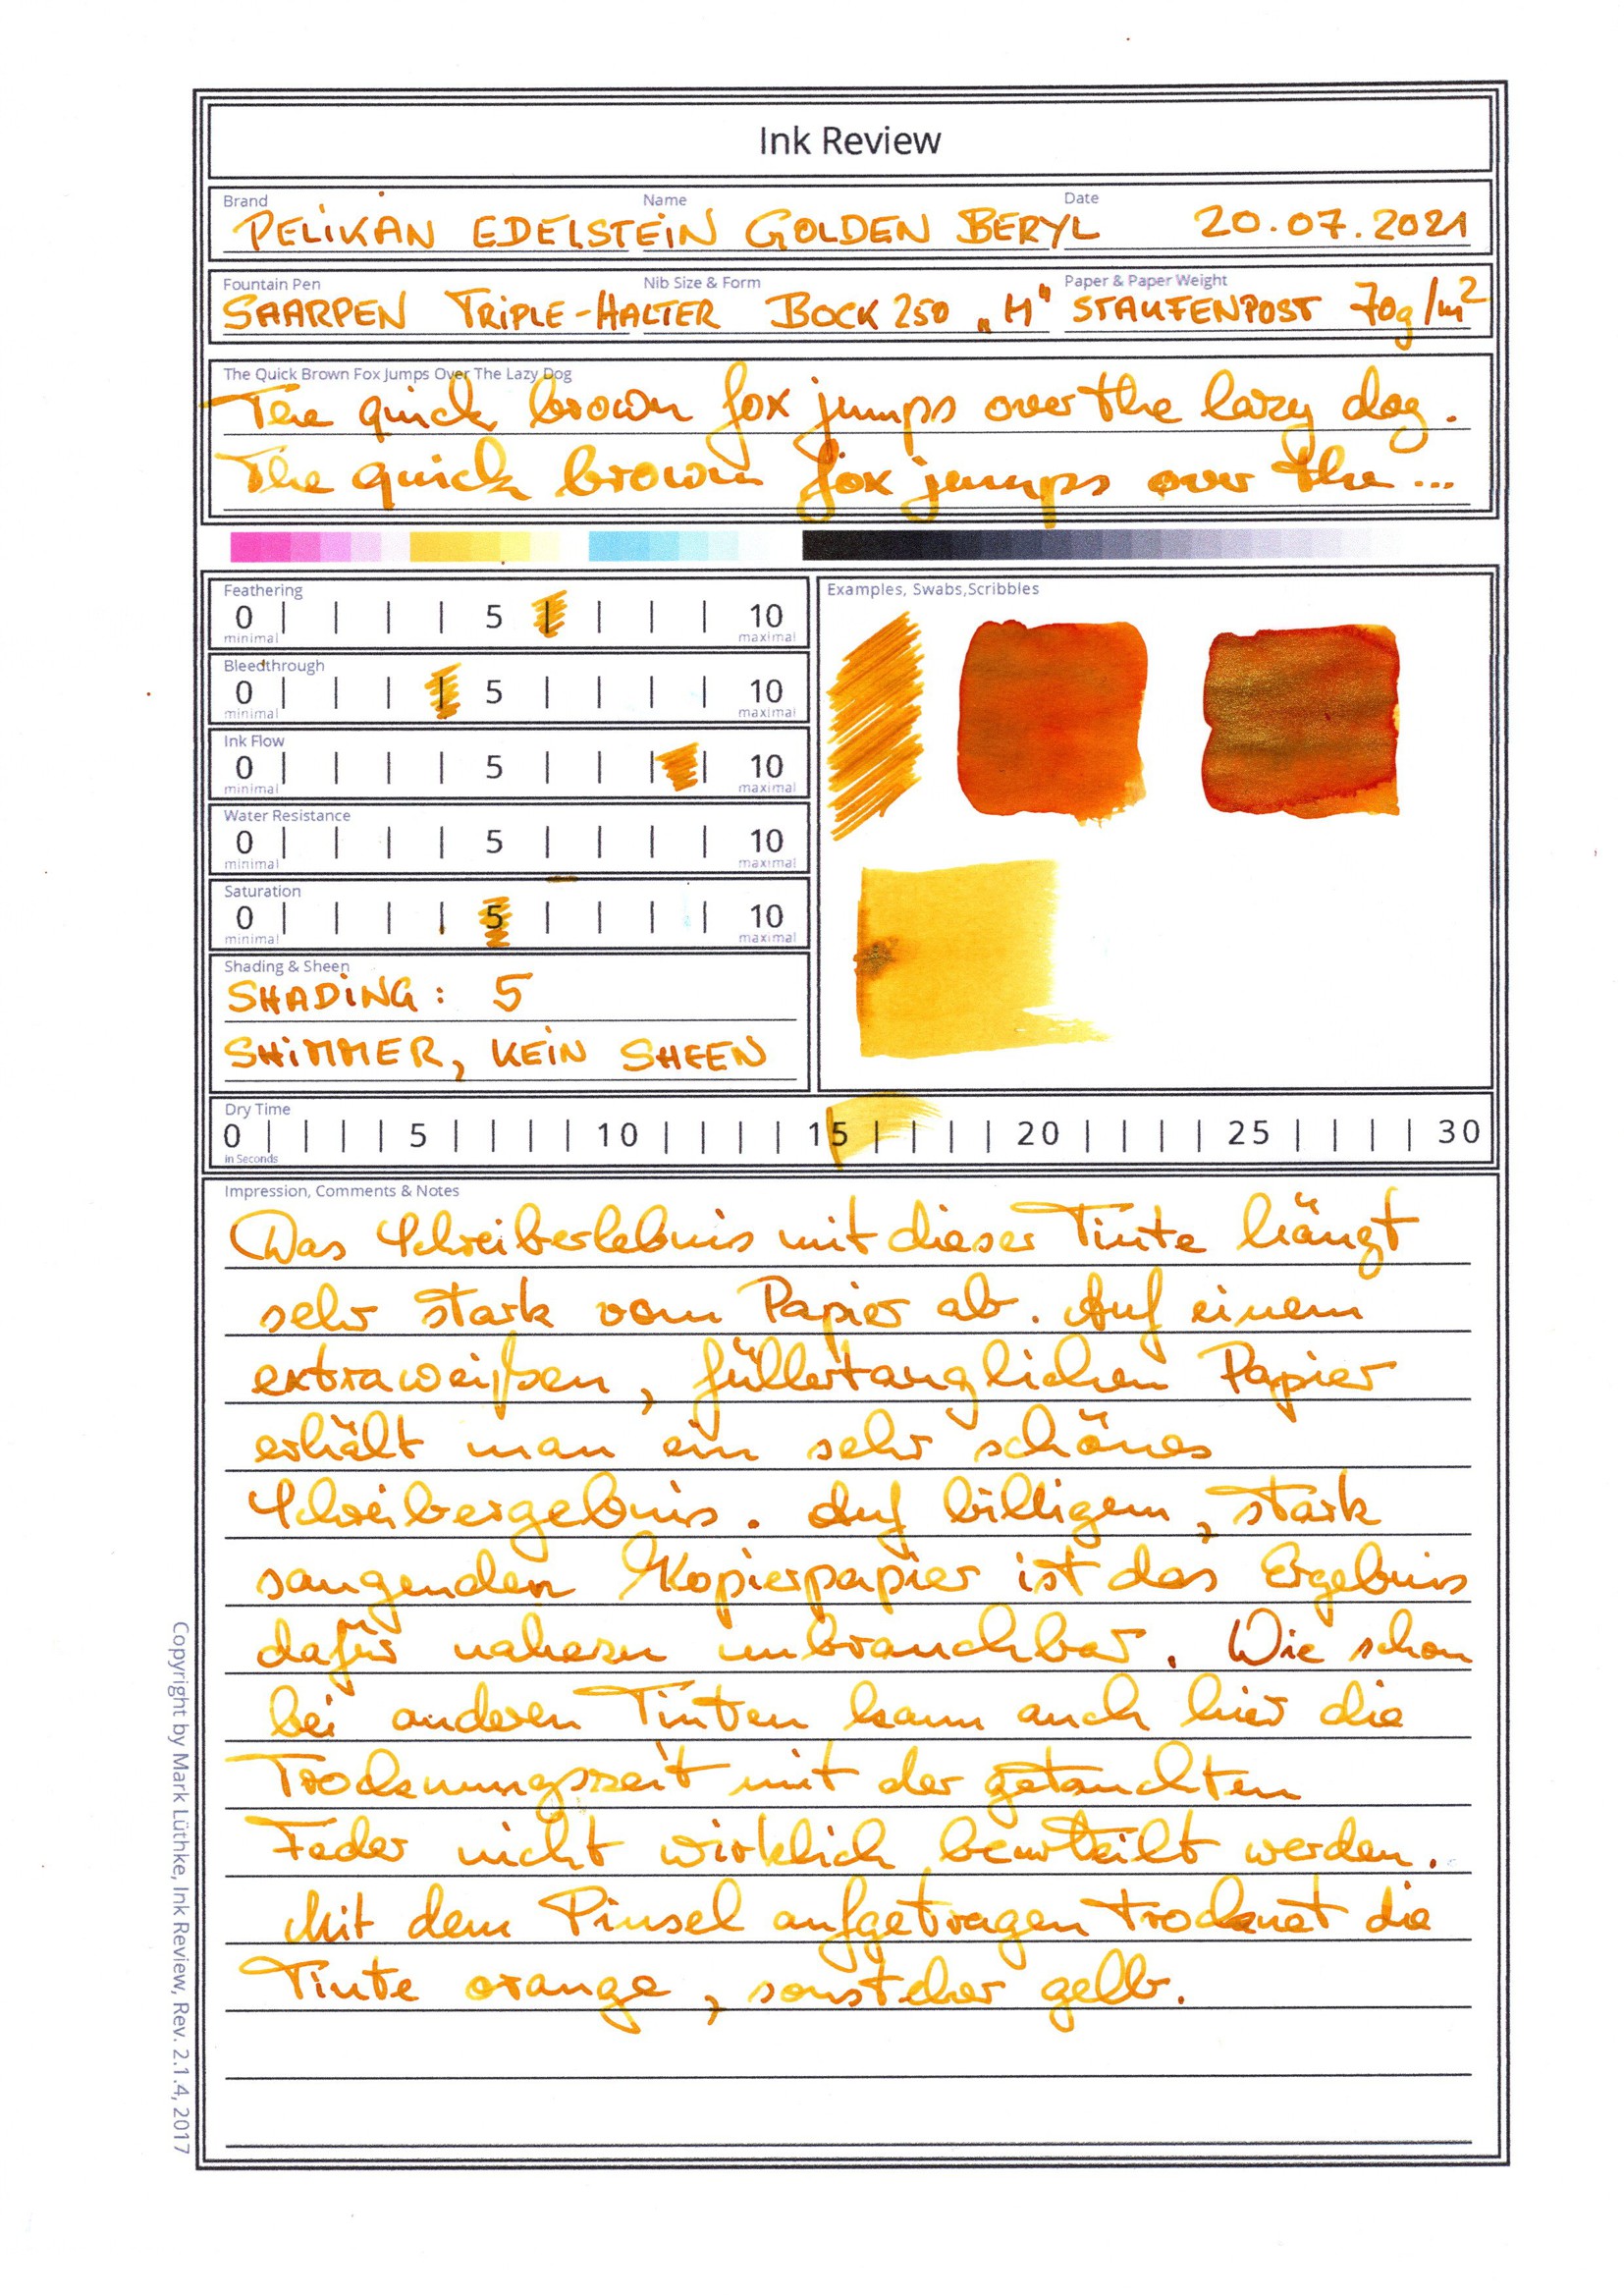 Ink Review
Brand Name Date
PELiKAN EDELSTEiN GOLDEN BERYL 20.07.2021
Fountain Pen Nib Size & Form Paper & Paper Weight
SAARPEN TRiPLE-HALTER BOCK 250 „M" STAUFENPOST 70g/m²
The Quick Brown Fox Jumps Over The Lazy Dog
The quick brown fox jumps over the lazy dog.
The quick brown fox jumps over the ...
Feathering
0 5 10
minimal maximal
Bleedthrough
0 5 10
minimal maximal
Ink Flow
0 5 10
minimal maximal
Water Resistance
0 5 10
minimal maximal
Saturation
0 5 10
minimal maximal
Shading & Sheen
SHADiNG: 5
SHiMMER, KEiN SHEEN
Examples, Swabs,Scribbles
Dry Time
0 5 10 15 20 25 30
in Seconds
Impression, Comments & Notes
Das Schreiberlebnis mit dieser Tinte hängt
sehr stark vom Papier ab. Auf einem
extraweißen, füllertauglichen Papier
erhält man ein sehr schönes
Schreibergebnis. Auf billigem, stark
saugenden Kopierpapier ist das Ergebnis
dafür nahezu unbrauchbar. Wie schon
bei anderen Tinten kann auch hier die
Trocknungszeit mit der getauchten
Feder nicht wirklich beurteilt werden.
Mit dem Pinsel aufgetragen trocknet die
Tinte orange, sonst eher gelb.
Copyright by Mark Lüthke, Ink Review, Rev. 2.1.4, 2017